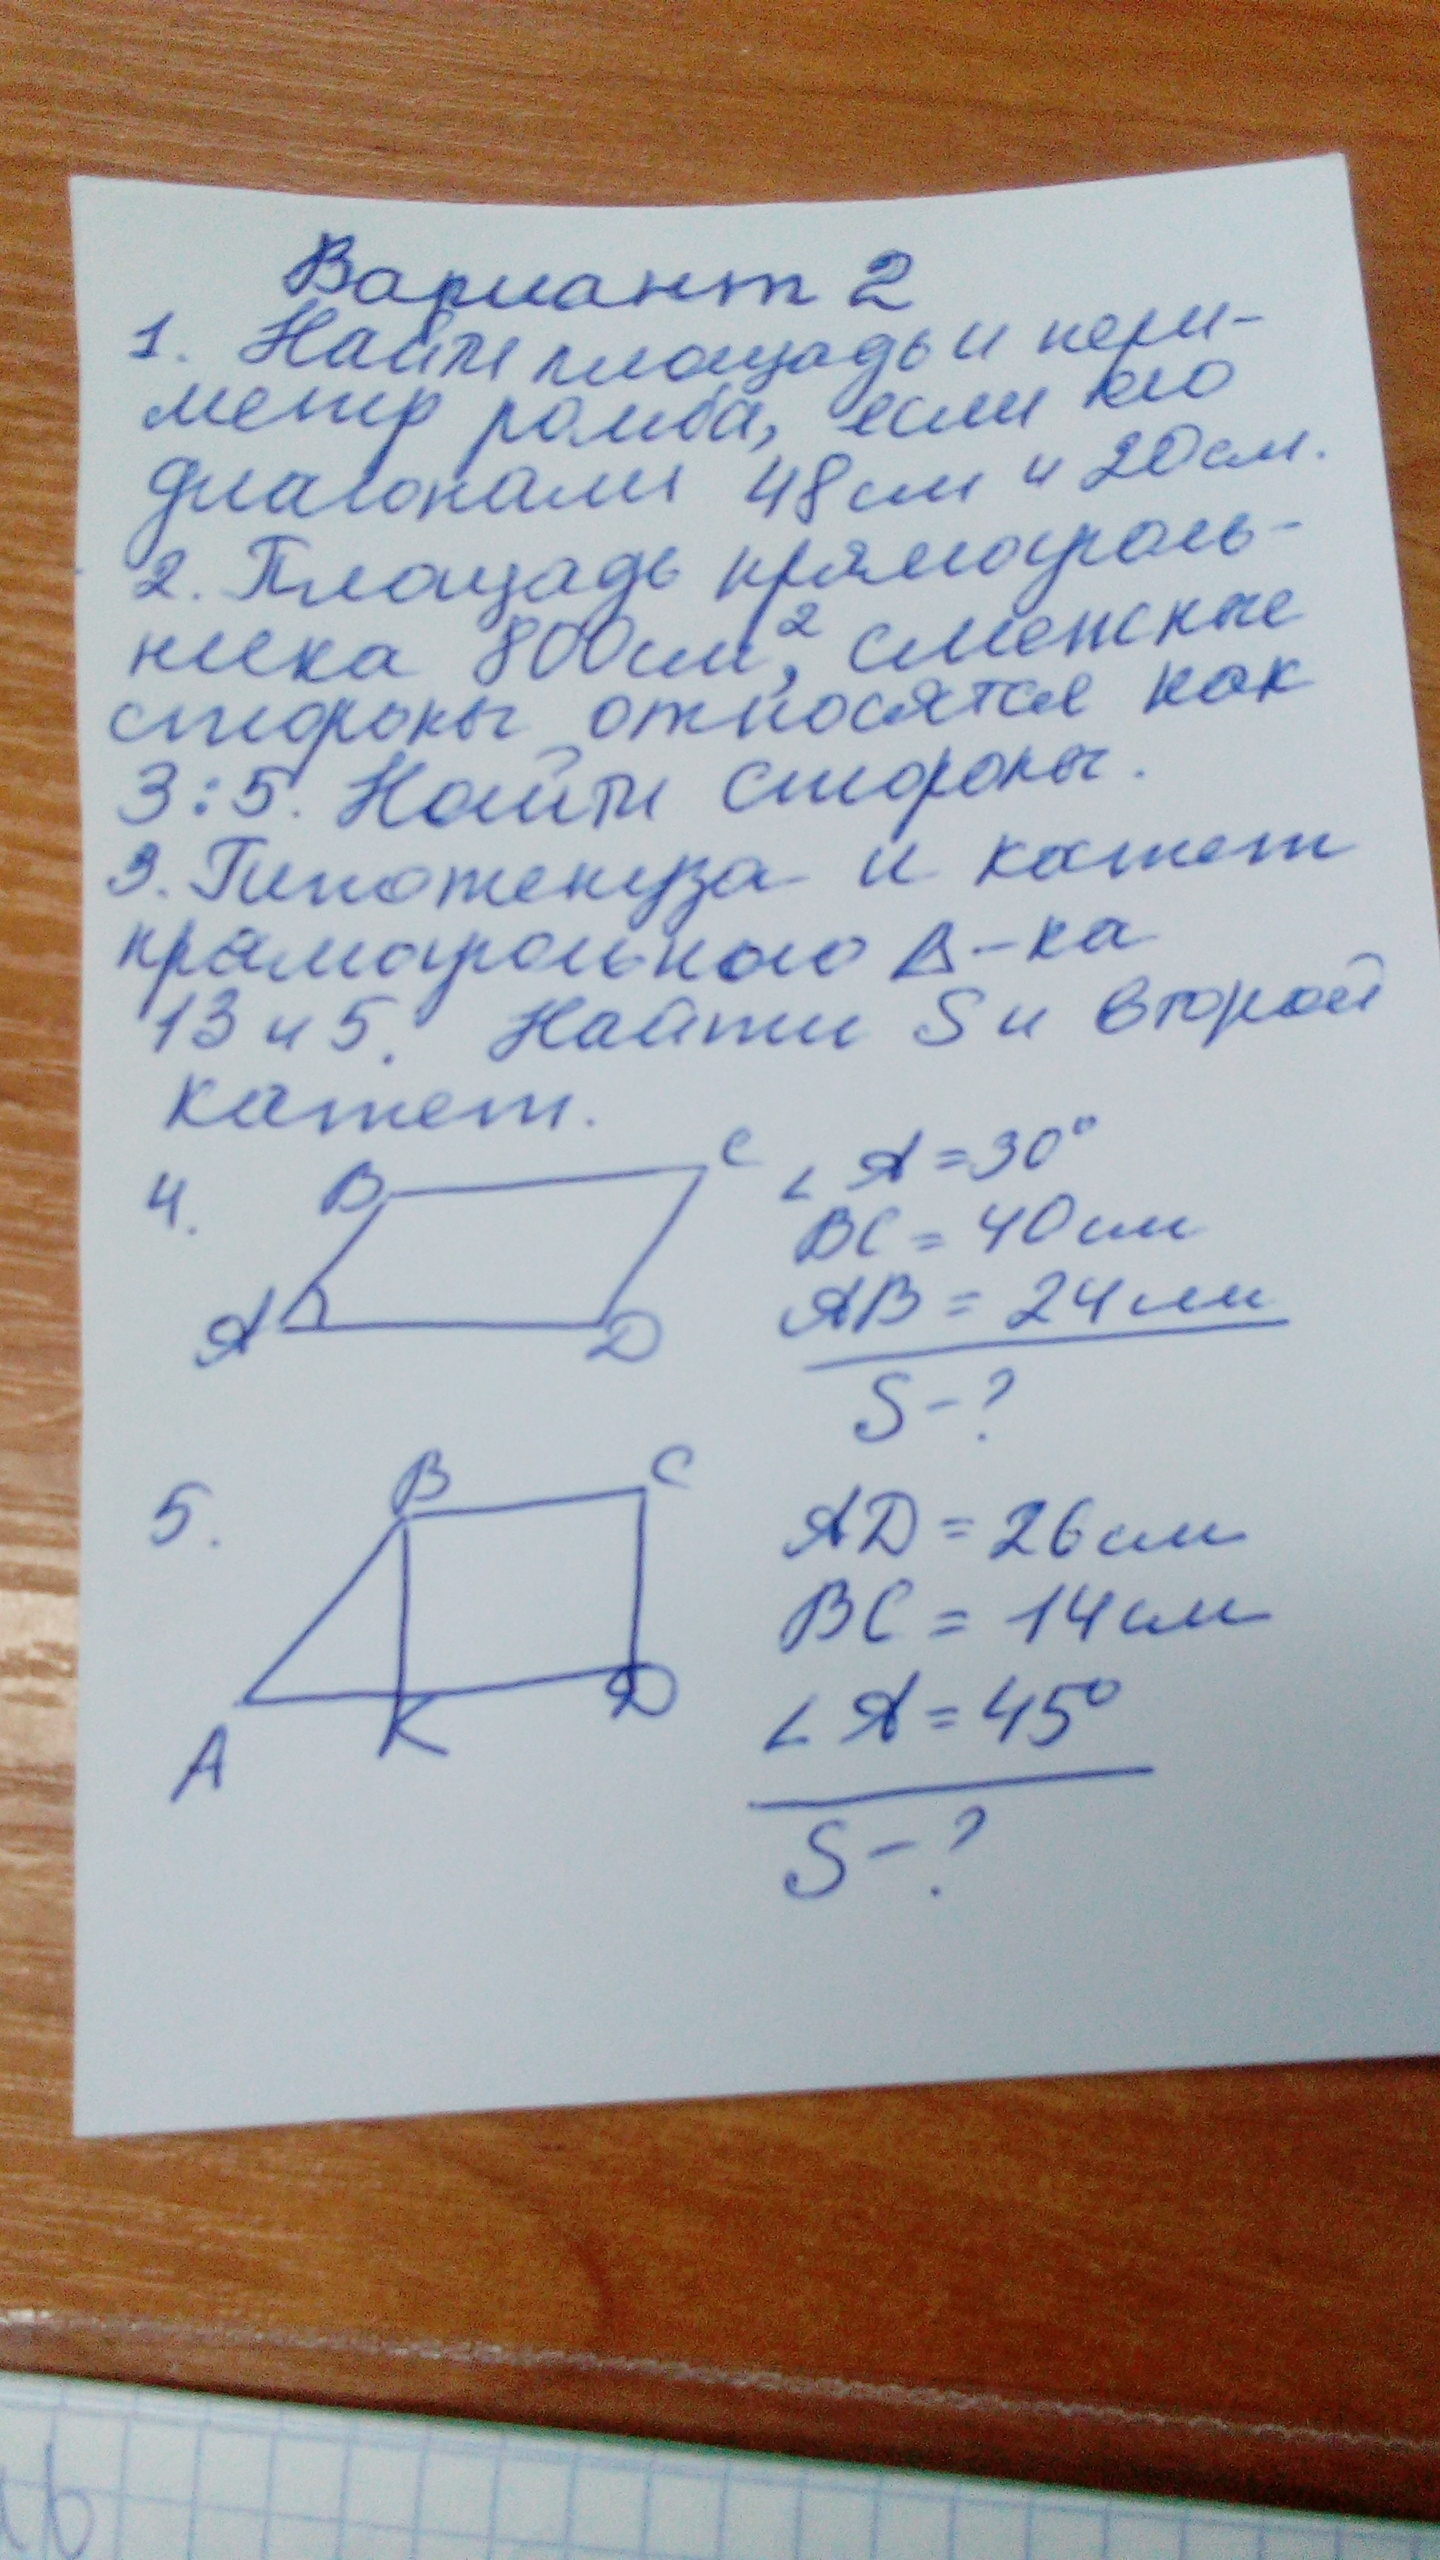 Вариант 2
1. Найти площадь и пери-
метр ромба, если его
диагонали 48см и 20см.
2. Площадь прямоуголь-
ника 800см², смежные
стороны относятся как
3:5. Найти стороны.
3. Гипотенуза и катет
прямоугольного Δ-ка
13 и 5. Найти S и второй
катет.
4. B C A D
∠A=30°
BC = 40см
AB = 24см
S-?
5. B C A K D
AD = 26см
BC = 14см
∠A = 45°
S-?